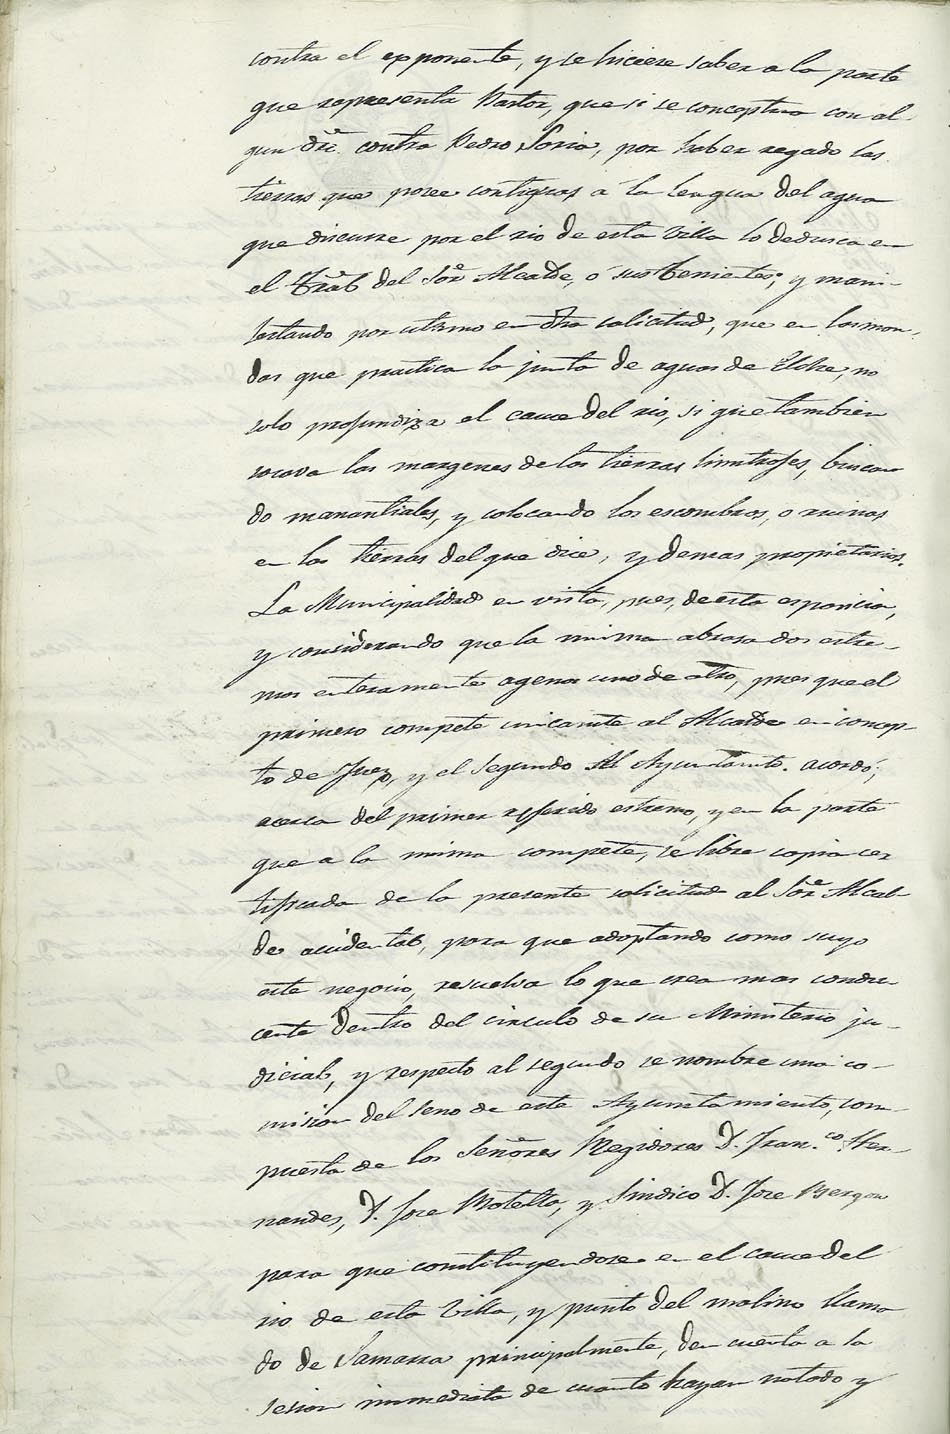 contra el exponente, y se hiciese saber a la parte
que representa Pastor, que si se conceptua con al
gun dro. contra Pedro Soria, por haber regado las
tierras que posee contiguas á la lengua del agua
que discurre por el rio de esta Villa lo deduzca en
el Trâl del Sor. Alcalde, ó sus tenientes; y mani-
festando por ultimo en dha solicitud, que en las mon-
das que practica la junta de aguas de Elche, no
solo profundiza el cauce del rio, si que tambien
socava las margenes de las tierras limitrofes, buscan
do manantiales, y colocando los escombros, o ruinas
en las tierras del que dice, y demas propietarios.
La Municipalidad en vista, pues, de esta esposicion,
y considerando que la misma abrasa dos estre-
mos enteramente agenos uno de otro, pues que el
primero compete unicamte al Alcalde en concep-
to de Juez, y el segundo Al Ayuntamto. acordó;
acerca del primer referido estremo, y en la parte
que a la misma compete, se libre copia cer
tificada de la presente solicitud al Sor. Alcal-
de accidental, para que adoptando como suyo
este negocio, resuelva lo que crea mas condu-
cente dentro del circulo de su Ministerio ju-
dicial, y respecto al segundo se nombre una co-
mision del seno de este Ayuntamiento, com-
puesta de los Señores Regidores D. Fran.co Her-
nandes, D. Jose Motella, y Sindico D. Jose
para que constituyendose en el cauce del
rio de esta Villa, y punto del molino llama
do de Jamarra principalmente, den cuenta a la
sesion immediata de cuanto hayan notado y